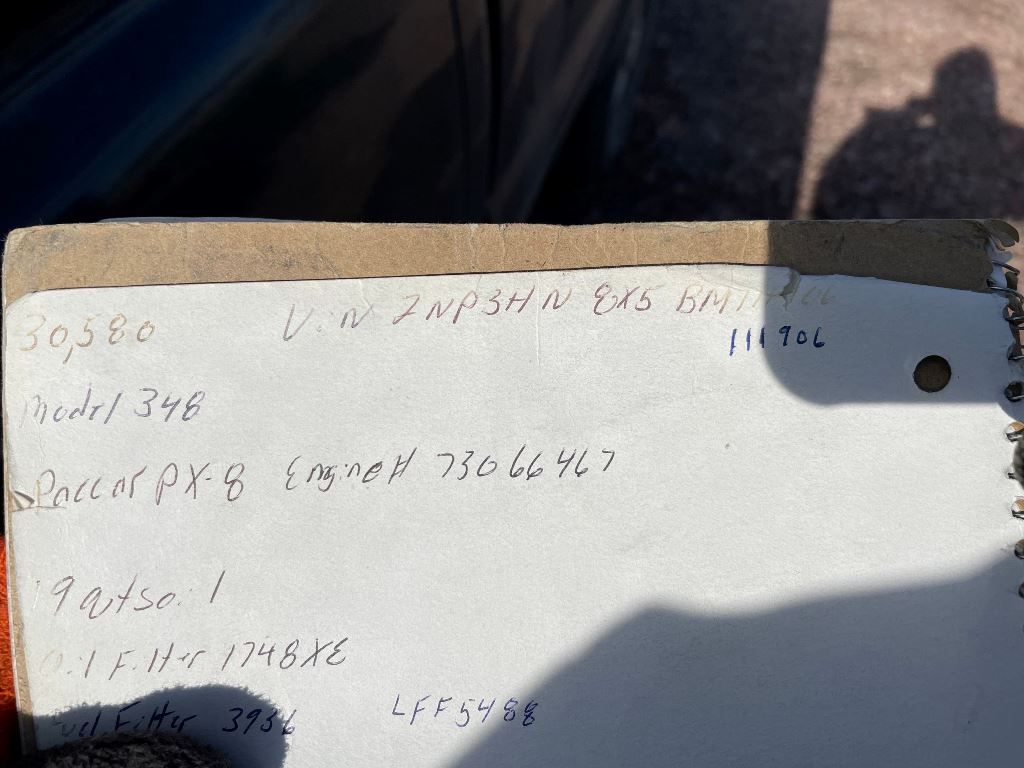 30,580 Vin 2NP3HN 8X5 BM
111906
Model 348
Paccar PX-8 Engine# 73066467
19 qts oil
Oil Filter 1748XE
Fuel Filter 3936 LFF5488